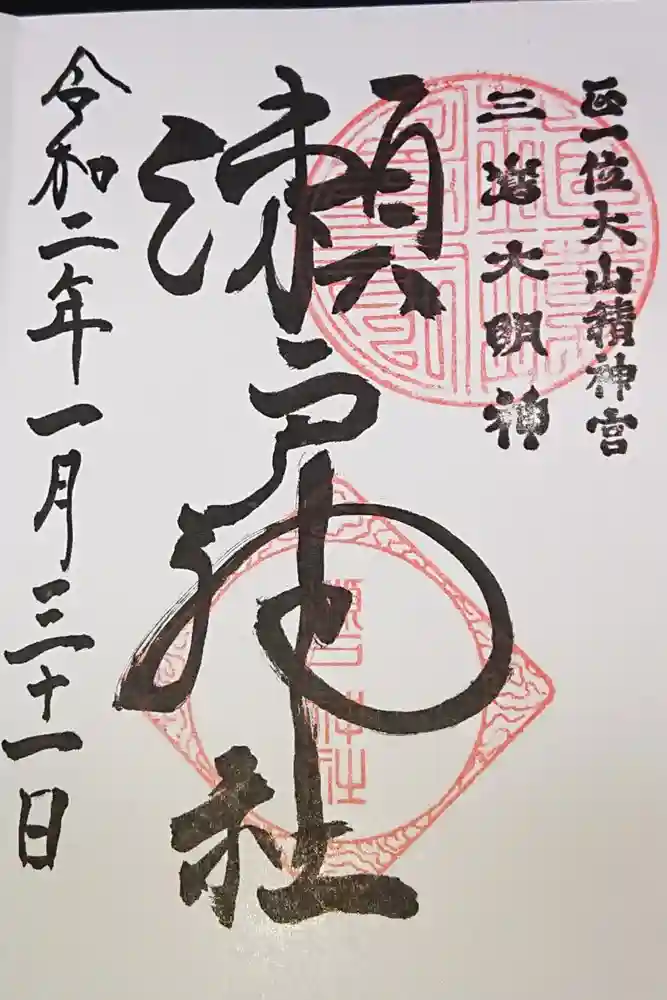 正一位大山積神宮
三島大明神
瀬戸神社
令和二年一月三十一日
瀬戸神社